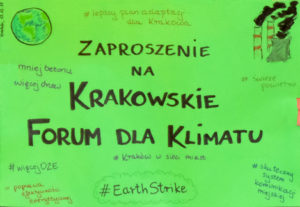 # lepszy plan adaptacji
dla Krakowa
ZAPROSZENIE
NA
mniej betonu
więcej drzew
# świeże
powietrze
KRAKOWSKIE
FORUM DLA KLIMATU
# Kraków w sieci miast
# więcej OZE
# poprawa
efektywności
energetycznej
# EarthStrike
# skuteczny
system
komunikacji
miejskiej